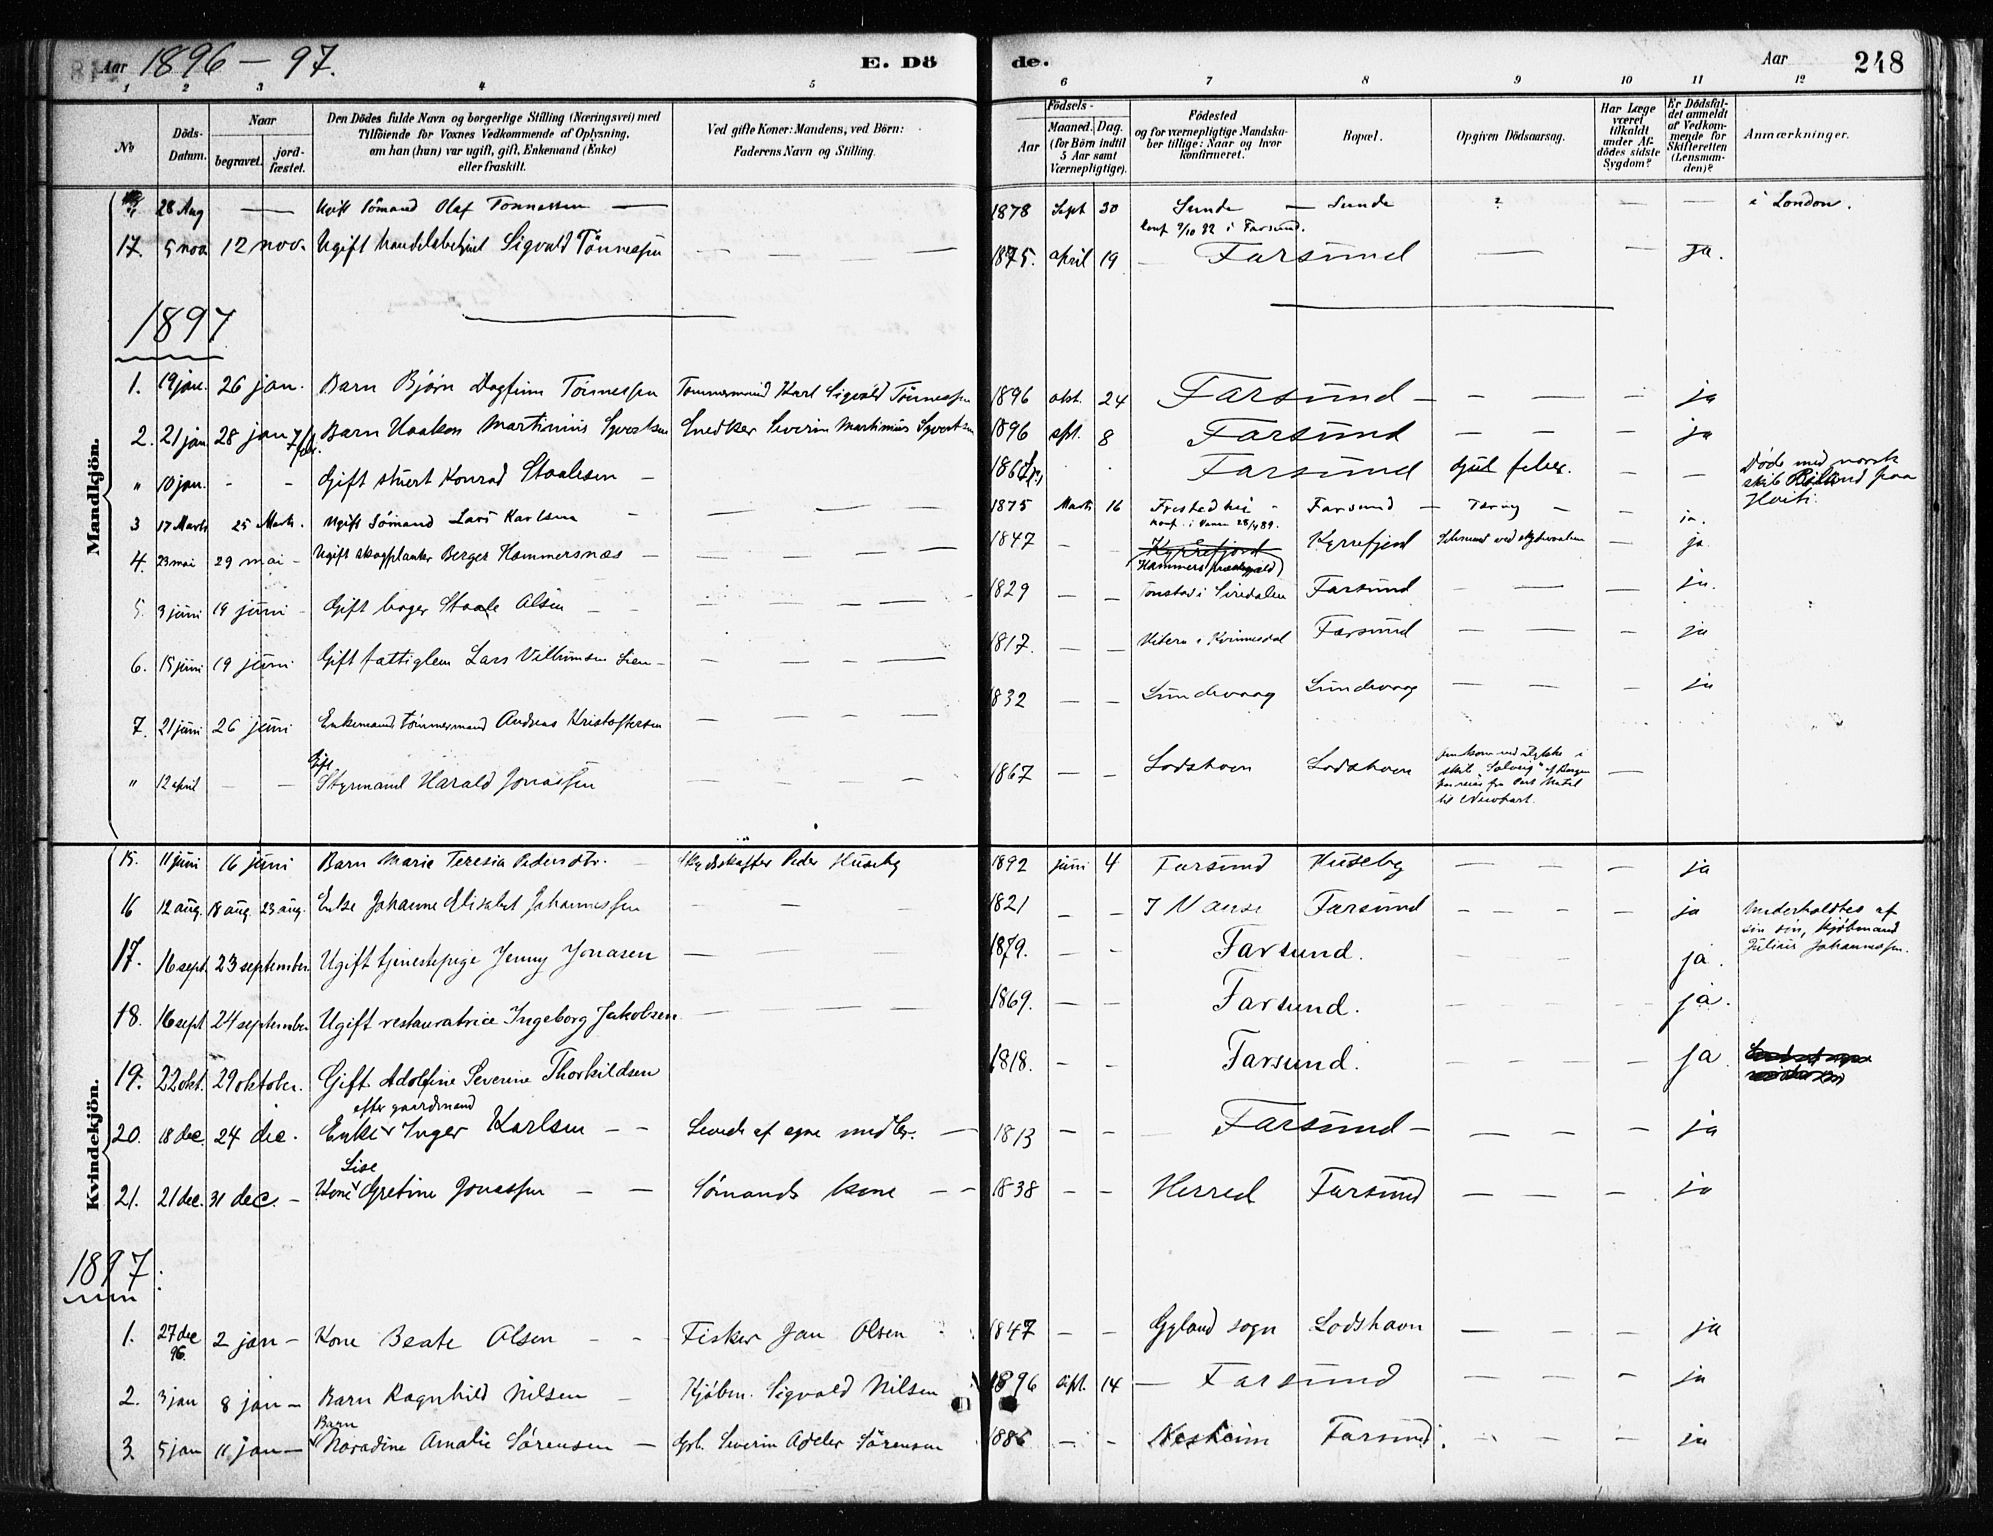 Aar 1896 – 97.
E. Döde.
Aar
248
1 2 3 4 5 6 7 8 9 10 11 12
No
Döds-Datum.
Naar
begravet.
jord-fæstet.
Den Dödes fulde Navn og borgerlige Stilling (Næringsvei) med
Tilföiende for Voxnes Vedkommende af Oplysning,
om han (hun) var ugift, gift, Enkemand (Enke)
eller fraskilt.
Ved gifte Koner: Mandens, ved Börn:
Faderens Navn og Stilling.
Födsels-
Aar
Maaned. Dag.
(for Börn indtil
5 Aar samt
Værnepligtige).
Födested
og for værnepligtige Mandskaber tillige: Naar og hvor konfirmeret.
Bopæl.
Opgiven Dödsaarsag.
Har Læge været tilkaldt under Afdödes sidste Sygdom?
Er Dödsfaldet anmeldt af Vedkommende for Skifteretten (Lensmanden)?
Anmærkninger.
Mandkjön.
28 Aug — Ugift Sømand Olaf Tønnessen — 1878 Sept 30 Sunde — Sunde ? — — i London.
konf 2/10 92 i Farsund.
17. 5 nov 12 nov. Ugift handelsbetjent Sigvald Tönnessen — — — — 1875. april 19 — Farsund — — ja.
1897
1. 19 jan. 26 jan. Barn Bjørn Dagfinn Tönnessen Tømmermand Karl Sigvald Tönnessen 1896 okt. 24 Farsund — — — — ja
2. 21 jan 28 jan 7/febr. Barn Haakon Martinius Syvertsen Snedker Severin Martinius Syvertsen 1896 spt. 8 Farsund — — — ja
" 10 jan. - - Gift stuert Konrad Staalesen — Farsund gul feber. — — Døde med norsk
skib
Haiti.
3 17 Marts 25 Marts. Ugift Sømand Lars Karlsen — — — — 1875 Marts 16 Farsund — Tæring — — ja.
konf. i Vanse 28/4 89.
4. 23 mai 29 mai — Ugift Berger Hammersnæs — — — 1847 — — Kyrrefjord Kyrrefjord — ja
5. 3 juni 19 juni — Gift Staale Olsen — — 1829 — — Tonstad i Siredalen Farsund — — — ja.
6. 15 juni 19 juni Gift fattiglem Lars Villumsen — — — — 1817. — — i Kvinnesdal Farsund — — — ja
7. 21 juni 26 juni Enkemand tømmermand Andreas Kristoffersen — — — — 1832 — — Lundevaag Lundevaag — — — ja
" 12 april - - Gift
Styrmand Harald Jonassen — — — 1867 — — Lodshavn Lodshavn omkom ved ulykke i
skib "Solveig" af Bergen
paa reise fra Port Natal
til Newport. —
Kvindekjön.
15. 11 juni 16 juni Barn Marie Teresia Pedersdtr. — Peder Huseby 1892 juni 4 Farsund Huseby — — — ja
16 12 aug. 18 aug. 23 aug. Enke Johanne Elisabet Johannessen — — — 1821 — — I Vanse Farsund — — — — ja Underholdtes af
sin søn, kjøbmand
Julius Johannessen.
17. 16 sept. 23 september. Ugift tjenestepige Jenny Jonasen — — — 1879. — — Farsund. — — — ja.
18. 16 sept 24 september Ugift restauratrice Ingeborg Jakobsen — — — 1869. — — Farsund. — — — ja.
19. 22 okt. 29 oktober. Gift Adolfine Severine Thorkildsen — — — 1818. — — Farsund. — — — — ja.
20. 18 dec 24 dec. efter gaardmand
Enke Inger Karlsen — — Levede af egne midler. — 1813 — — — Farsund — — — — — ja
21. 21 dec. 31 dec. — Lise
Kone Gretine Jonassen — — Sømands kone — — 1838 — — Herred Farsund — — — — ja
1897.
1. 27 dec 96. 2 jan — Kone Beate Olsen — — Fisker Jan Olsen 1847 — — Gyland sogn Lodshavn — — — — ja
2. 3 jan 8 jan — Barn Ragnhild Nilsen — Kjøbm. Sigvald Nilsen 1896 sept. 14 — Farsund — — — — ja
3. 5 jan 11 jan — Barn
Noradine Amalie Sörensen — Severin Adler Sörensen 1886 — — Neskeim Farsund. — — — ja